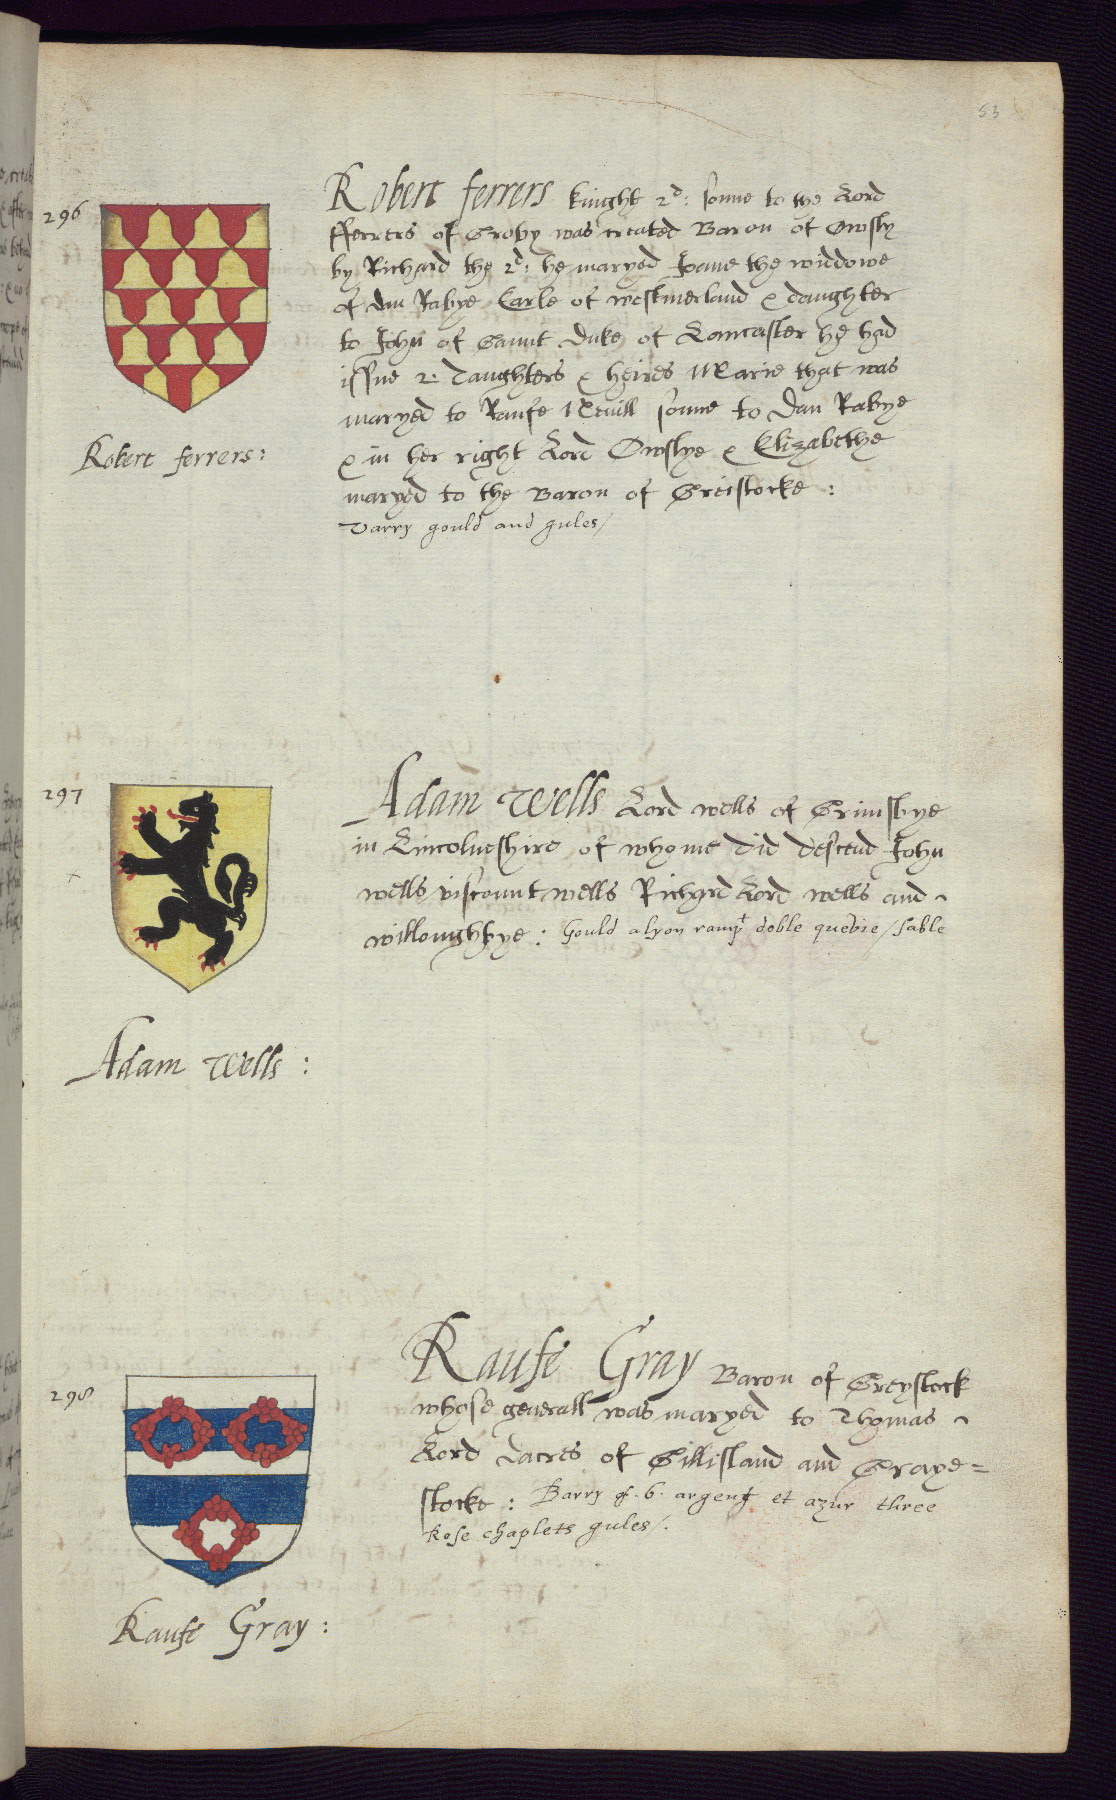 53
296
Robert ferrers knight 2d: sonne to the Lord
fferrers of Groby was created Baron of Owsly
by Richard the 2d: he maryed Joane the widdowe
of dan Rabye Earle of westmerland & daughter
to John of Gaunt duke of Lancaster he had
issue 2. daughters & heires Marie that was
maryed to Raufe Nevill sonne to dan Rabye
& in her right Lord Owslye & Elizabethe
maryed to the Baron of Greistocke:
Varry gould and gules/
Robert ferrers:
297
Adam Wells Lord wells of Grimsbye
in Lincolneshire of whome did descend John
wells viscount wells Richard Lord wells and
willoughbye: Gould a lyon rampt doble quevie / sable
Adam Wells:
298
Raufe Gray Baron of Greystock
whose generall was maryed to Thomas
Lord dacres of Gillisland and Graye=
stocke: Barry of .6. argent et azur three
Rose chaplets gules/.
Raufe Gray: